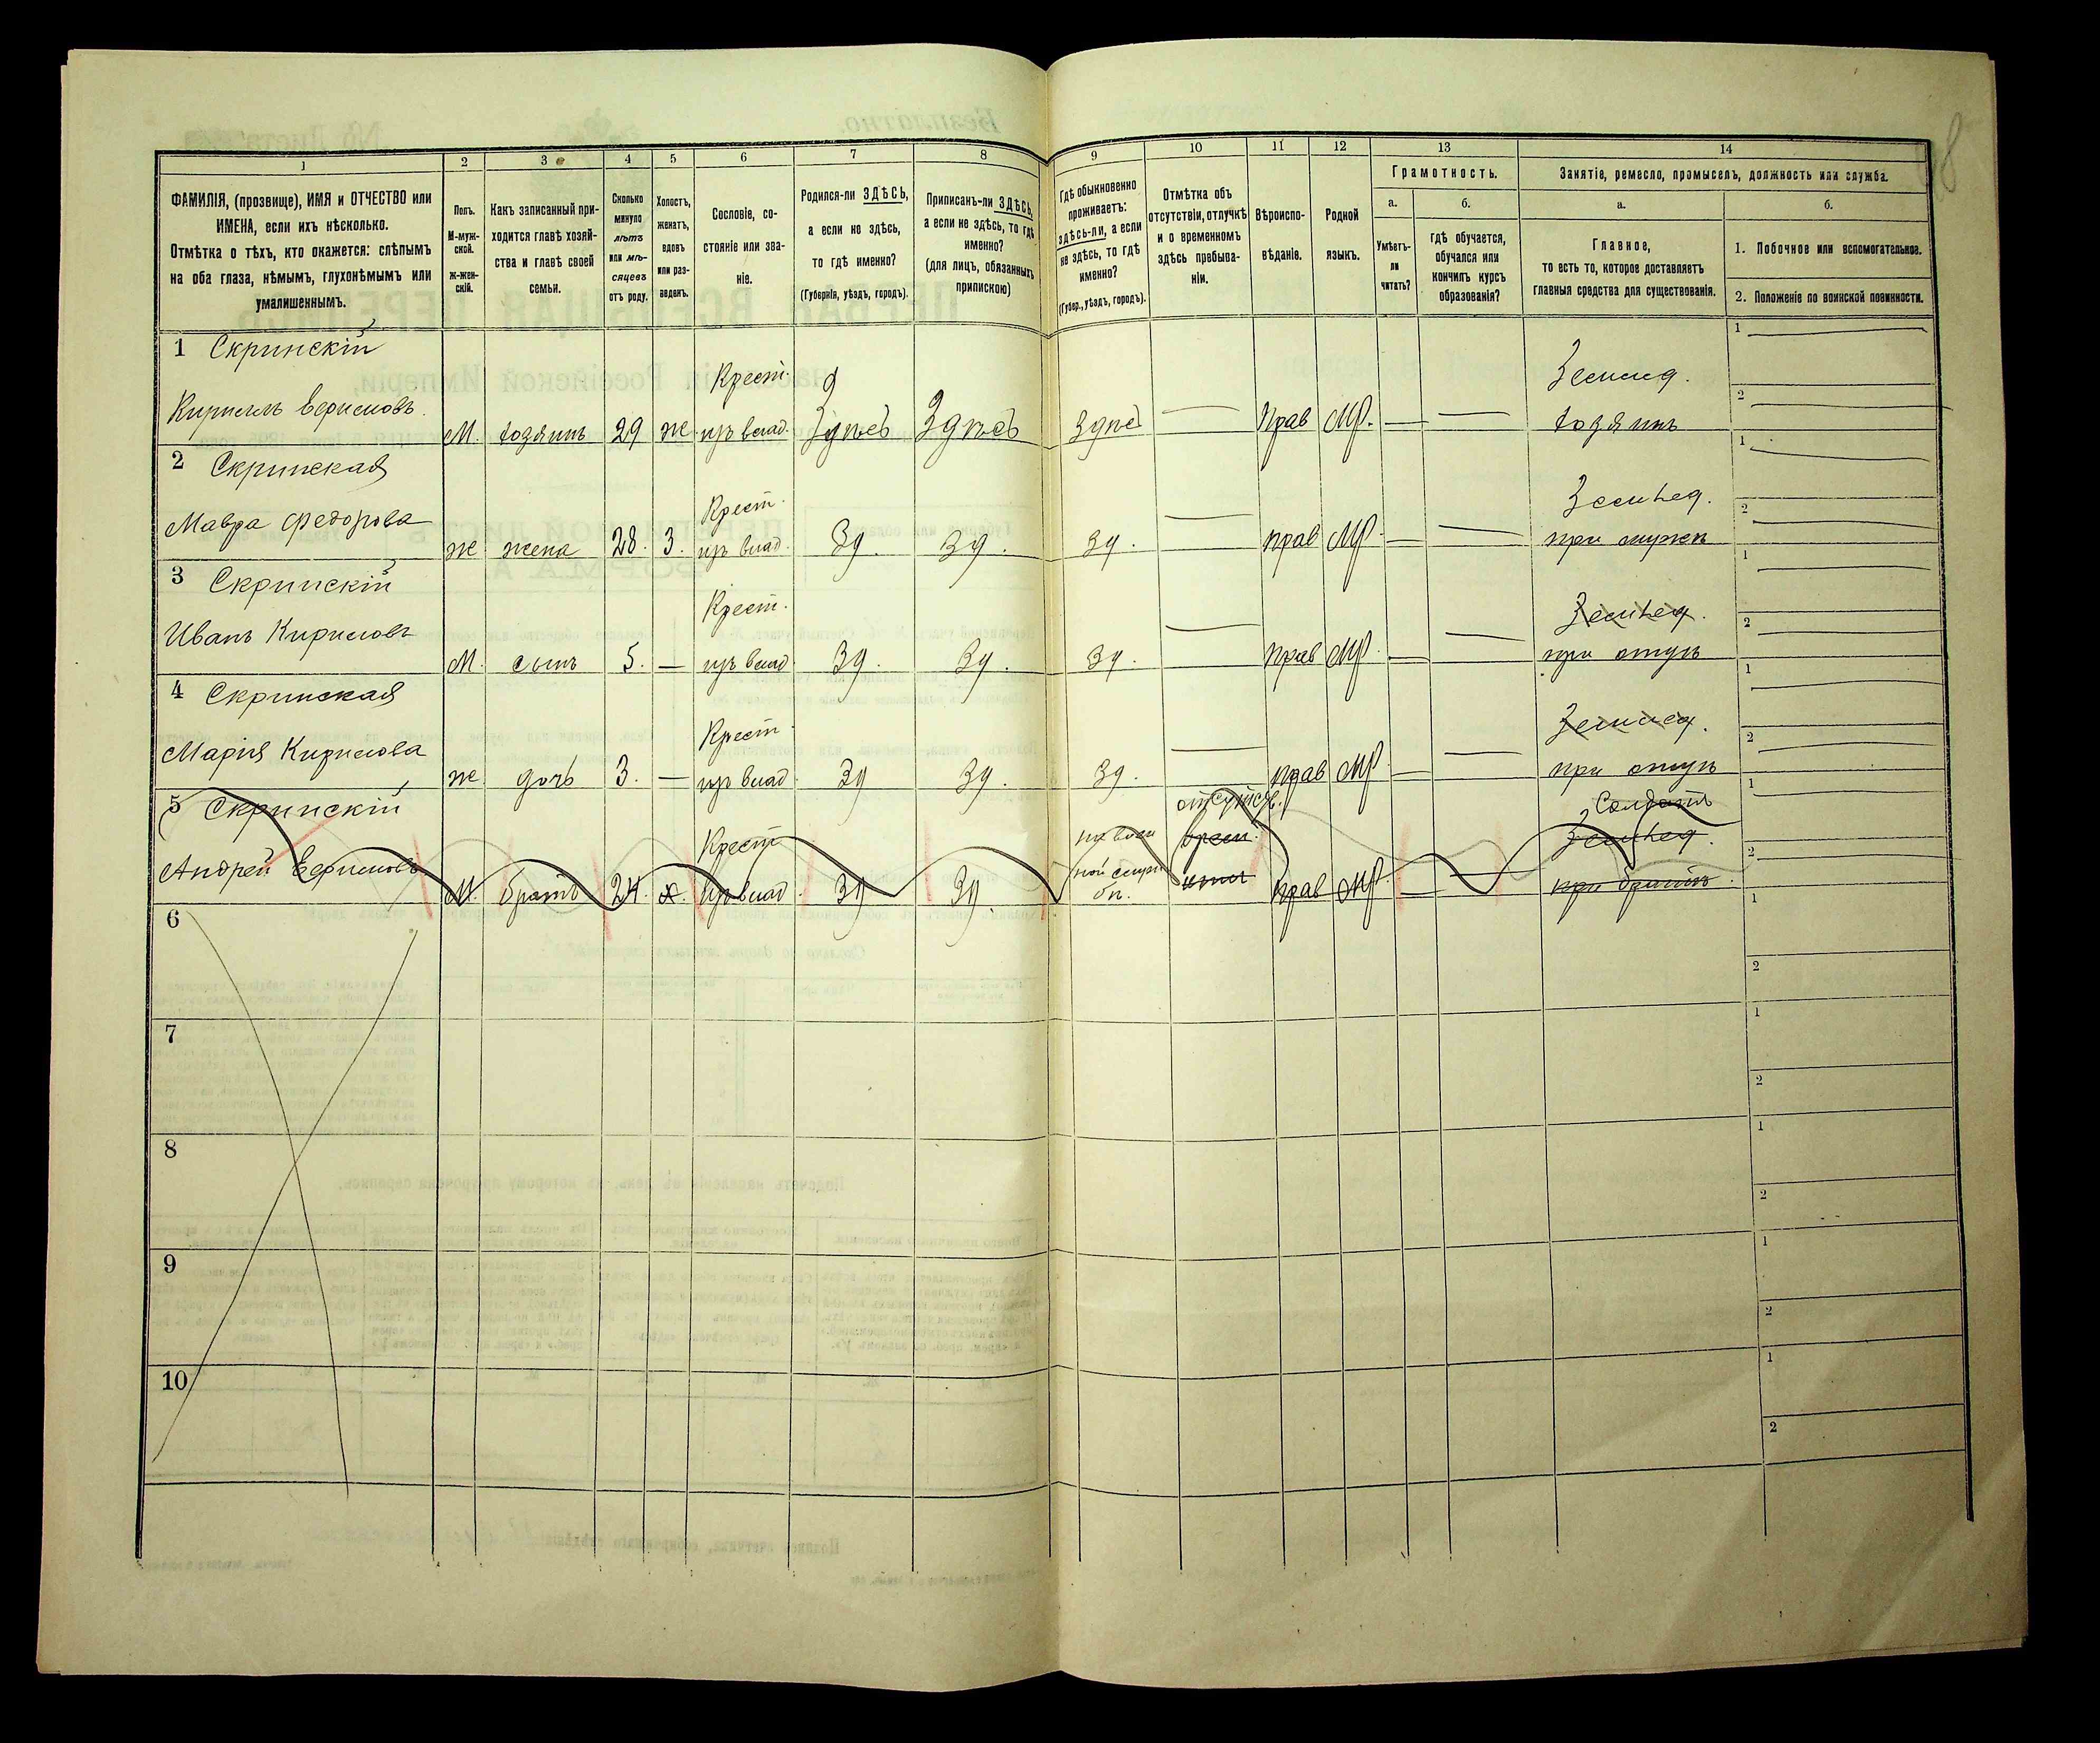 1 2 3 4 5 6 7 8 9 10 11 12 13 14
ФАМИЛІЯ, (прозвище), ИМЯ и ОТЧЕСТВО или
ИМЕНА, если ихъ нѣсколько.
Отмѣтка о тѣхъ, кто окажется: слѣпымъ
на оба глаза, нѣмымъ, глухонѣмымъ или
умалишеннымъ.
Полъ.
М-муж-
ской.
ж-жен-
скій.
Какъ записанный при-
ходится главѣ хозяй-
ства и главѣ своей
семьи.
Сколько
минуло
лѣтъ
или мѣ-
сяцевъ
отъ роду.
Холостъ,
женатъ,
вдовъ
или раз-
веденъ.
Сословіе, со-
стояніе или зва-
ніе.
Родился-ли ЗДѢСЬ,
а если не здѣсь,
то гдѣ именно?
(Губернія, уѣздъ, городъ).
Приписанъ-ли ЗДѢСЬ,
а если не здѣсь, то гдѣ
именно?
(для лицъ, обязанныхъ
припискою)
Гдѣ обыкновенно
проживаетъ:
здѣсь-ли, а если
не здѣсь, то гдѣ
именно?
(Губер., уѣздъ, городъ).
Отмѣтка объ
отсутствіи, отлучкѣ
и о временномъ
здѣсь пребыва-
ніи.
Вѣроиспо-
вѣданіе.
Родной
языкъ.
Грамотность.
а.
Умѣетъ-
ли
читать?
б.
гдѣ обучается,
обучался или
кончилъ курсъ
образованія?
Занятіе, ремесло, промыселъ, должность или служба.
а.
Главное,
то есть то, которое доставляетъ
главныя средства для существованія.
б.
1. Побочное или вспомогательное.
2. Положеніе по воинской повинности.
1 Скринскій
Крест. Землед.
М. хозяинъ 29 ж. Здѣсь Здѣсь Здѣсь — Прав МР. — — хозяинъ
1
2
2 Скринская
Крест. Землед.
Мавра Федорова ж. жена 28. З. Зд. Зд. Зд. — прав МР. — — при мужѣ
1
2
3 Скринскій
Крест. Землед.
Иванъ Кириловъ М. сынъ 5. — Зд. Зд. Зд. — прав МР. — — при отцѣ
1
2
4 Скринская
Крест. Землед.
Марія Кирилова ж. дочь 3. — Зд Зд. Зд. — прав МР. — — при отцѣ
1
2
5 Скринскій
отсутств. Солдатъ
Крест Землед.
Андрей М. братъ 24. х. Зд Зд. прав МР. — — при братѣ
1
2
6
1
2
7
1
2
8
1
2
9
1
2
10
1
2